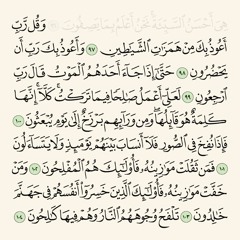 هِيَ أَحْسَنُ ٱلسَّيِّئَةَ نَحْنُ أَعْلَمُ بِمَا يَصِفُونَ
وَقُل رَّبِّ
أَعُوذُ بِكَ مِنْ هَمَزَٰتِ ٱلشَّيَٰطِينِ ٩٧ وَأَعُوذُ بِكَ رَبِّ أَن
يَحْضُرُونِ ٩٨ حَتَّىٰٓ إِذَا جَآءَ أَحَدَهُمُ ٱلْمَوْتُ قَالَ رَبِّ
ٱرْجِعُونِ ٩٩ لَعَلِّىٓ أَعْمَلُ صَٰلِحًا فِيمَا تَرَكْتُ ۚ كَلَّآ ۚ إِنَّهَا
كَلِمَةٌ هُوَ قَآئِلُهَا ۖ وَمِن وَرَآئِهِم بَرْزَخٌ إِلَىٰ يَوْمِ يُبْعَثُونَ ١٠٠
فَإِذَا نُفِخَ فِى ٱلصُّورِ فَلَآ أَنسَابَ بَيْنَهُمْ يَوْمَئِذٍ وَلَا يَتَسَآءَلُونَ
١٠١ فَمَن ثَقُلَتْ مَوَٰزِينُهُۥ فَأُو۟لَٰٓئِكَ هُمُ ٱلْمُفْلِحُونَ ١٠٢ وَمَنْ
خَفَّتْ مَوَٰزِينُهُۥ فَأُو۟لَٰٓئِكَ ٱلَّذِينَ خَسِرُوٓا۟ أَنفُسَهُمْ فِى جَهَنَّمَ
خَٰلِدُونَ ١٠٣ تَلْفَحُ وُجُوهَهُمُ ٱلنَّارُ وَهُمْ فِيهَا كَٰلِحُونَ ١٠٤